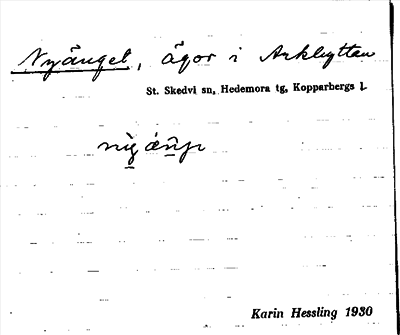 Nyänget, ägor i Arkhyttan
St. Skedvi sn, Hedemora tg, Kopparbergs l.
Karin Hessling 1930